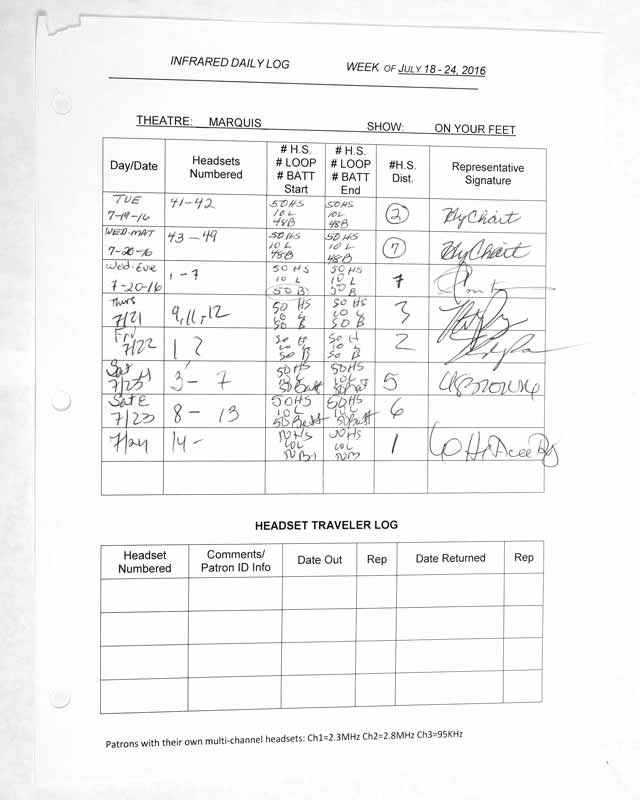 INFRARED DAILY LOG WEEK OF JULY 18 - 24, 2016
THEATRE: MARQUIS SHOW: ON YOUR FEET
Day/Date Headsets Numbered # H.S. # LOOP # BATT Start # H.S. # LOOP # BATT End #H.S. Dist. Representative Signature
TUE 7-19-16 41-42 50HS 10 L 48B 50HS 10L 48B 2
WED-MAT 7-20-16 43-49 50HS 10 L 48B 50HS 10 L 48B 7
Wed-Eve 7-20-16 1-7 50 HS 10 L 50 B 50 HS 10 L 50 B 7
Thurs 7/21 9,11,-12 50 HS 10 L 50 B 50 HS 10 L 50 B 3
Fri 7/22 1 2 50 H 10 L 50 B 50 H 10 L 50 B 2
Sat M 7/23 3-7 50HS 10L 50Batt 50HS 10L 50Batt 5
Sat E 7/23 8-13 50HS 10L 50Batt 50HS 10L 50Batt 6
7/24 14- 1
HEADSET TRAVELER LOG
Headset Numbered Comments/ Patron ID Info Date Out Rep Date Returned Rep
Patrons with their own multi-channel headsets: Ch1=2.3MHz Ch2=2.8MHz Ch3=95KHz